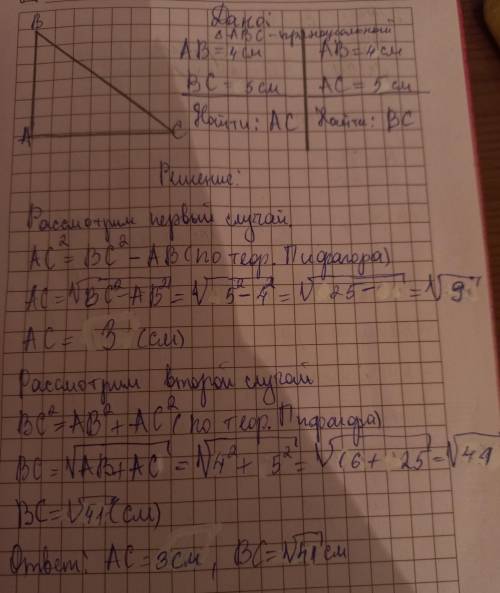 B
A
C
Дано:
△ABC - прямоугольный
AB = 4 см
BC = 5 см
Найти: AC
AB = 4 см
AC = 5 см
Найти: BC
Решение:
Рассмотрим первый случай.
AC² = BC² - AB (по теор. Пифагора)
AC = √BC² - AB² = √5² - 4² = √25 - = √9
AC = 3 (см)
Рассмотрим второй случай
BC² = AB² + AC² (по теор. Пифагора)
BC = √AB + AC = √4² + 5² = √16 + 25 = √41
BC = √41 (см)
Ответ: AC = 3 см, BC = √41 см